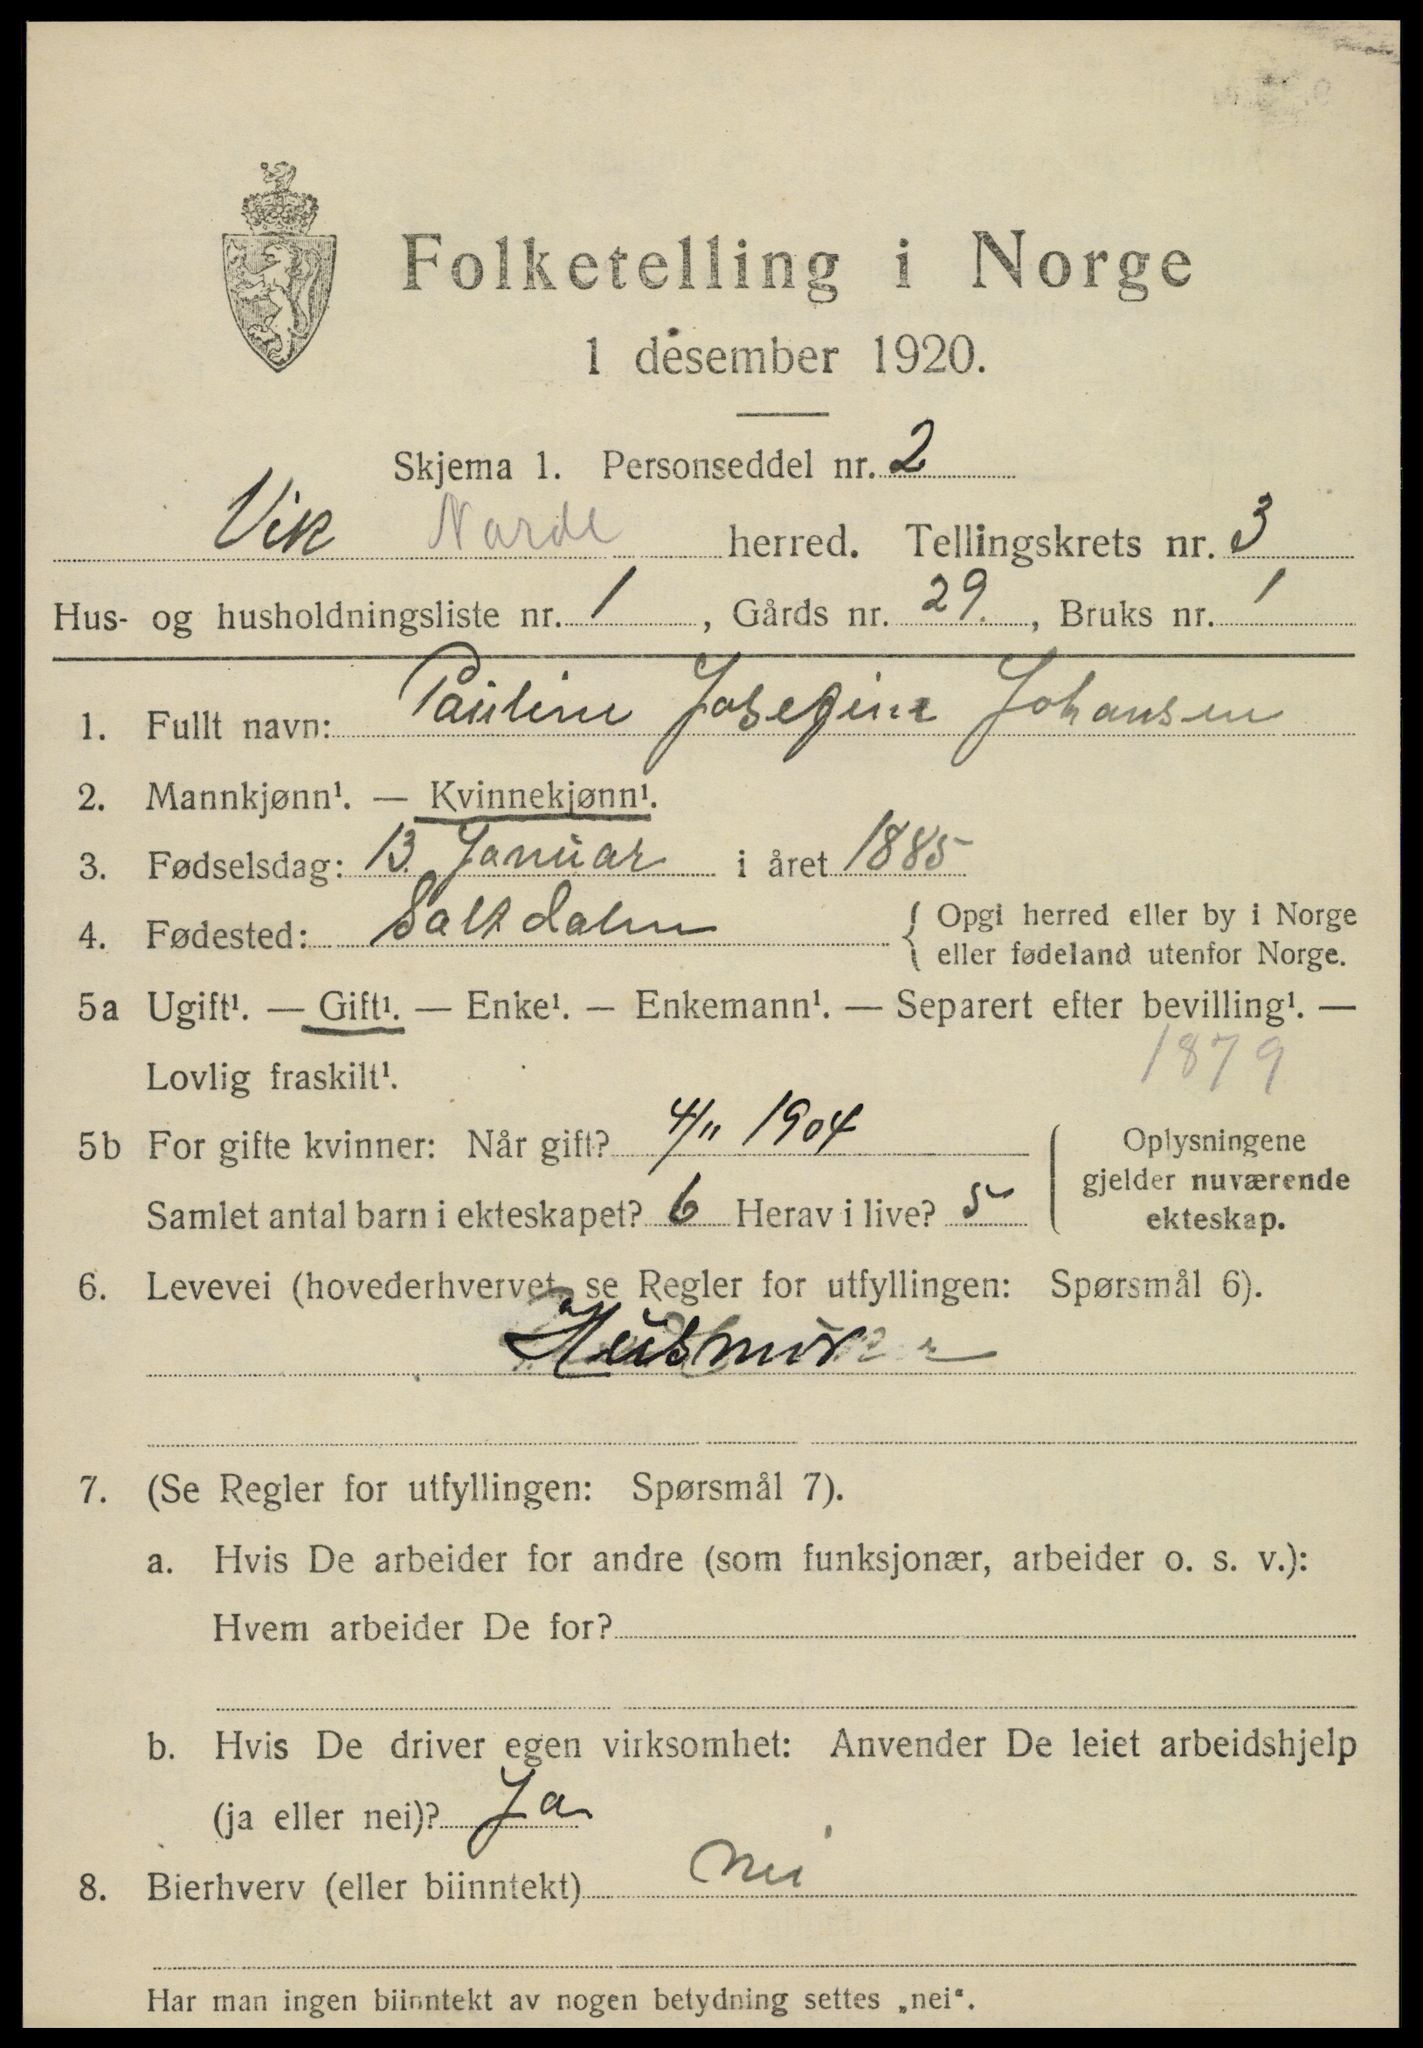 Folketelling i Norge
1 desember 1920.
Skjema 1. Personseddel nr. 2
Vik Narde herred. Tellingskrets nr. 3
Hus- og husholdningsliste nr. 1, Gårds nr. 29., Bruks nr. 1
1. Fullt navn: Pauline Josefine Johansen
2. Mannkjønn¹. — Kvinnekjønn¹.
3. Fødselsdag: 13. Januar i året 1885
4. Fødested: Saltdalen { Opgi herred eller by i Norge
eller fødeland utenfor Norge.
5a Ugift¹. — Gift¹. — Enke¹. — Enkemann¹. — Separert efter bevilling¹. —
Lovlig fraskilt¹. 1879
5b For gifte kvinner: Når gift? 4/11 1904
Samlet antal barn i ekteskapet? 6 Herav i live? 5
Oplysningene
gjelder nuværende
ekteskap.
6. Levevei (hovederhvervet, se Regler for utfyllingen: Spørsmål 6).
Husmor
7. (Se Regler for utfyllingen: Spørsmål 7).
a. Hvis De arbeider for andre (som funksjonær, arbeider o. s. v.):
Hvem arbeider De for?
b. Hvis De driver egen virksomhet: Anvender De leiet arbeidshjelp
(ja eller nei)? Ja
8. Bierhverv (eller biinntekt) Nei
Har man ingen biinntekt av nogen betydning settes „nei“.